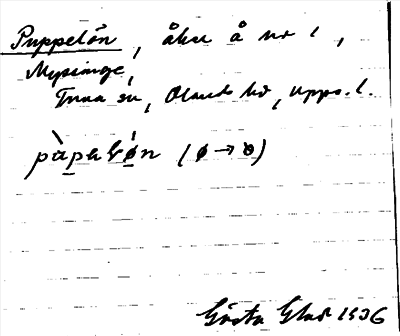 Puppelön, åker å nr 1,
Mysinge,
Tuna sn, Olands hd, Upps. l.
pàpelø̀n (ø→ö)
Gösta Glad 1936